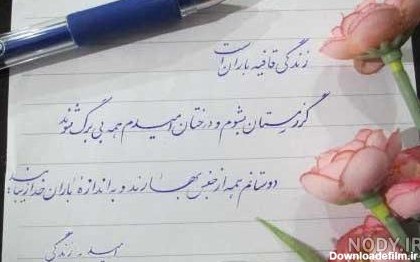 زندگی قافیه باران است
گر زمستان بشوم و درختان امیدم همه بی برگ شوند
دوستانم همه از جنس بهارند و به اندازهٔ باران خدا زیبایند
امید زندگی
NODY.IR
Downloadefilm.ir